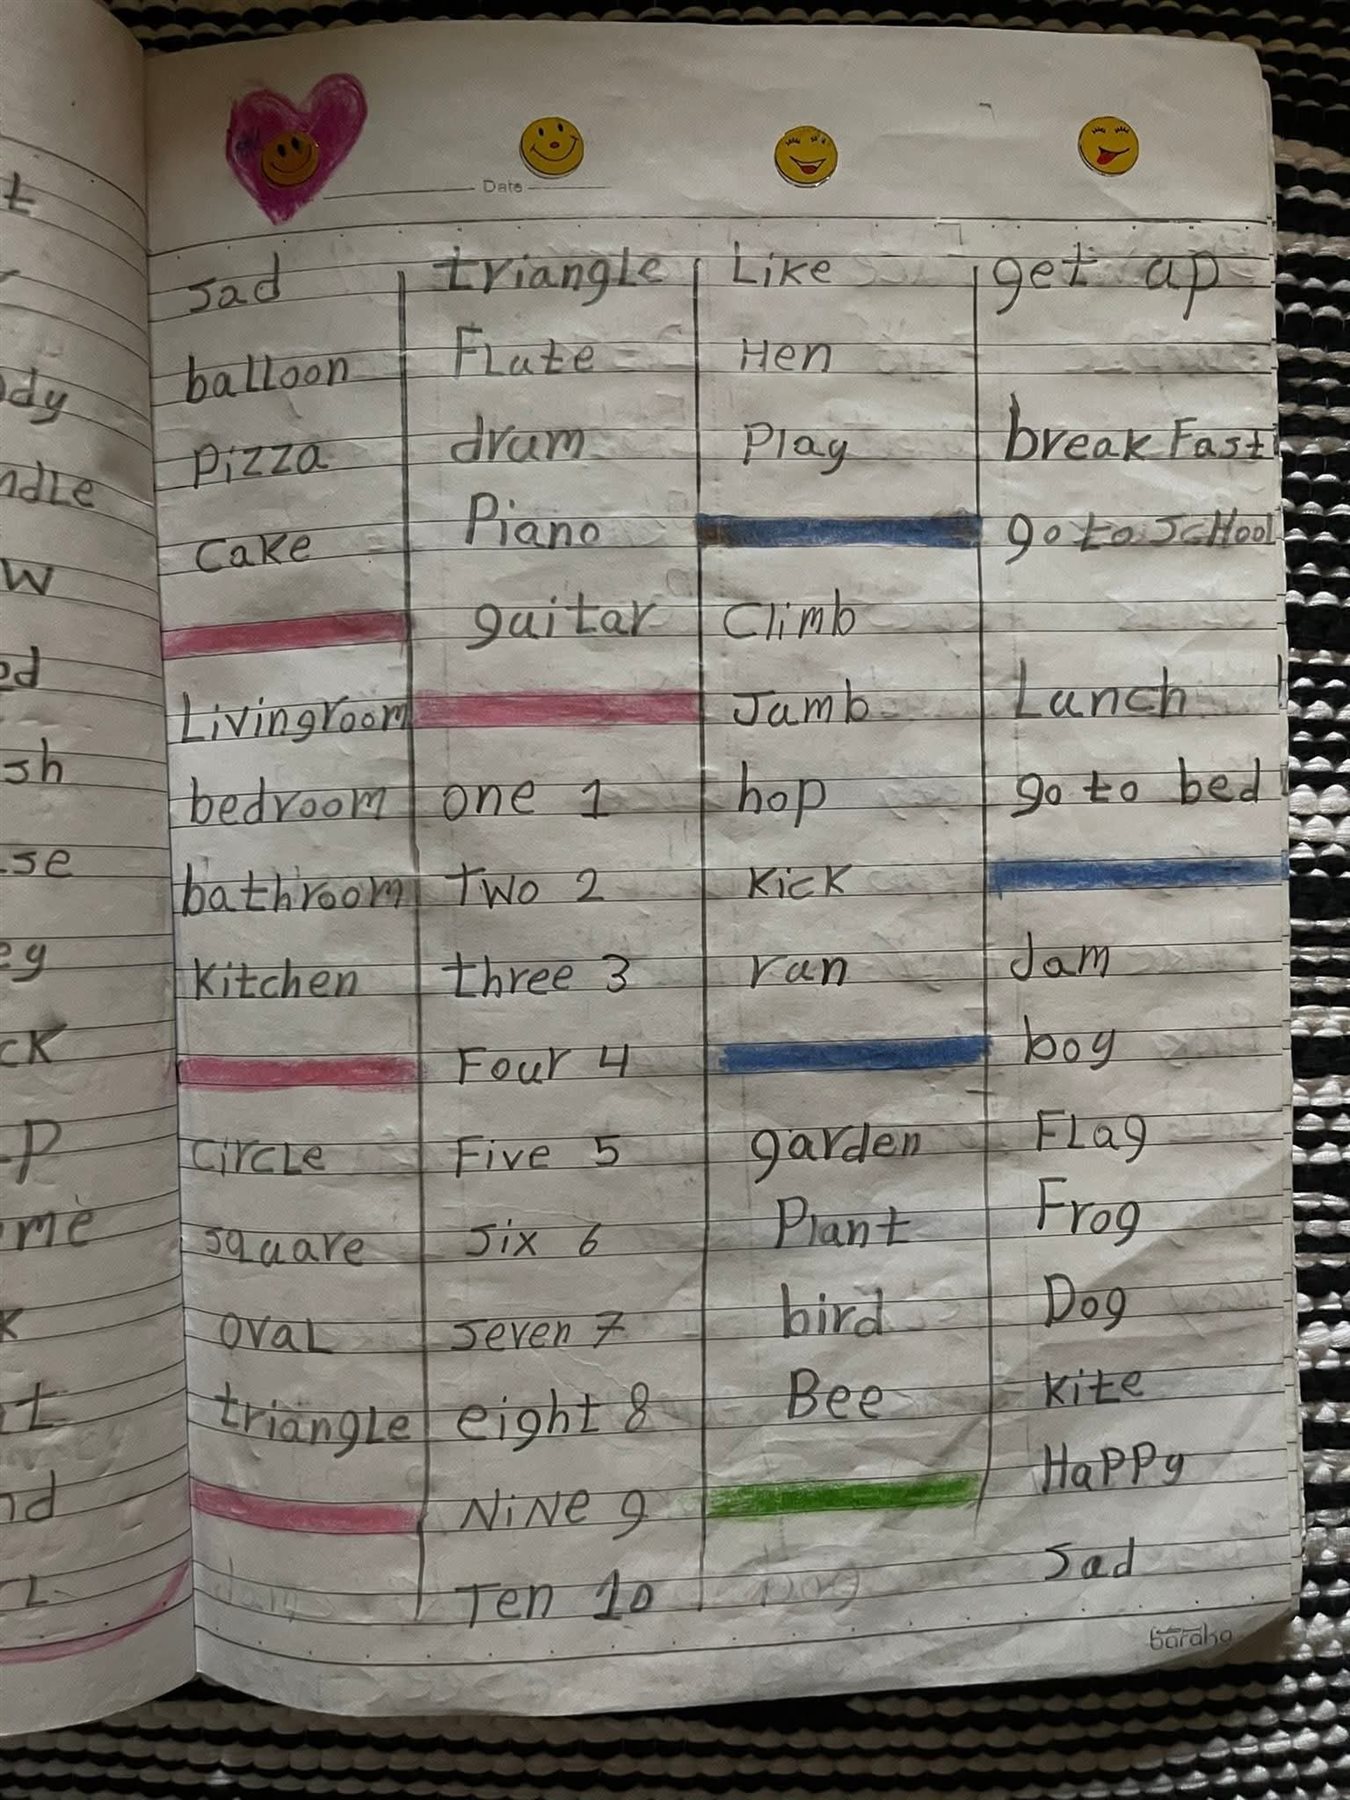 Date
sad
balloon
Pizza
Cake
Livingroom
bedroom
bathroom
Kitchen
CirCLe
square
ovaL
triangLe
triangLe
FLute
drum
Piano
guitar
one 1
Two 2
three 3
Four 4
Five 5
Six 6
Seven 7
eight 8
NiNe 9
Ten 10
Like
Hen
Play
Climb
Jumb
hop
Kick
run
garden
Plant
bird
Bee
get up
breakFast
go to ScHool
Lunch
go to bed
Jam
boy
FLag
Frog
Dog
Kite
HaPPy
Sad
baraka